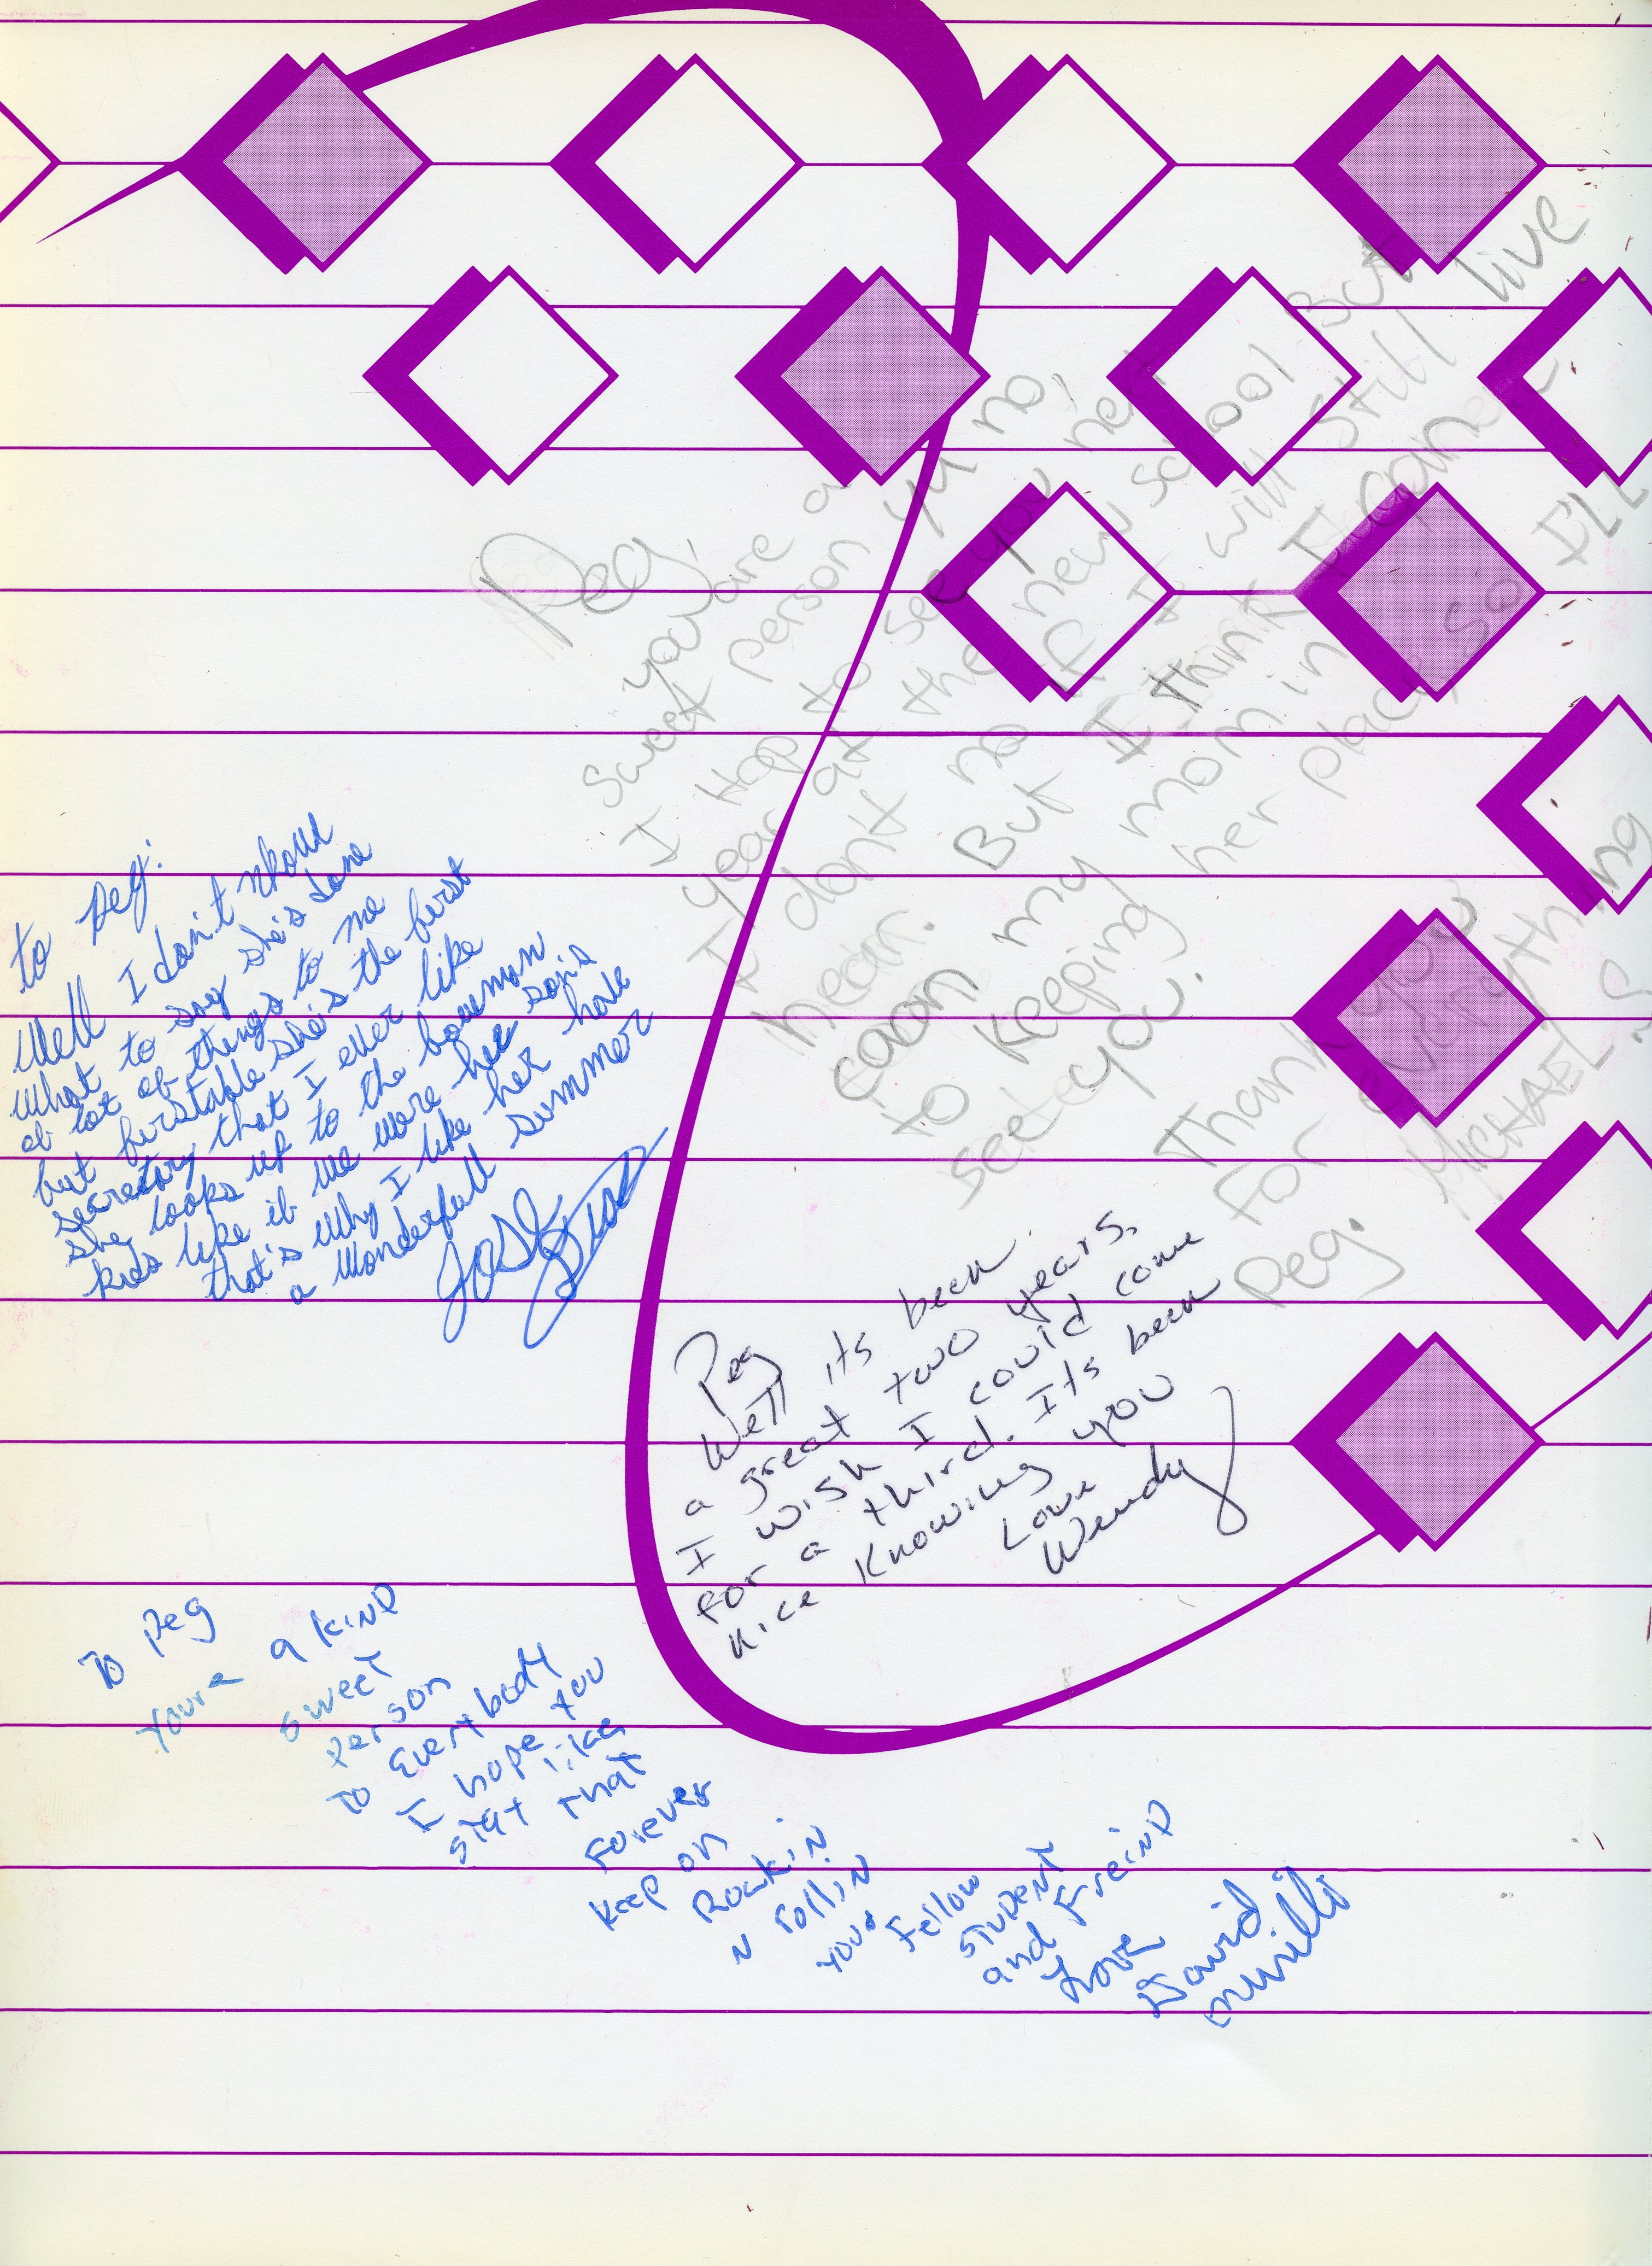 Peg,
you are a
Sweet person yu no,
I Hop to see you next
year at the new school But
I dont no if I will still live
near. But I think I
can my mom in
to keeping her place so I'll
see you.
Thank you
For everything
Peg. MICHAEL S
to Peg:
Well I don't nkow
what to say she's done
a lot of things to me
but firstable she's the first
secretary that I ever like
she looks up to the bowman
kids like if we were her son's
that's why I like her have
a wonderfull summer
Josh
Peg
Well its been
a great two years.
I wish I could come
for a third. Its been
nice knowing you
Love
Wendy
To Peg
Youre a kinD
sweet
Person
To Everybody
I hope you
stay like
that
Forever
keep on
Rockin
N rollin
your Fellow
stuDent
and FreinD
Love
David